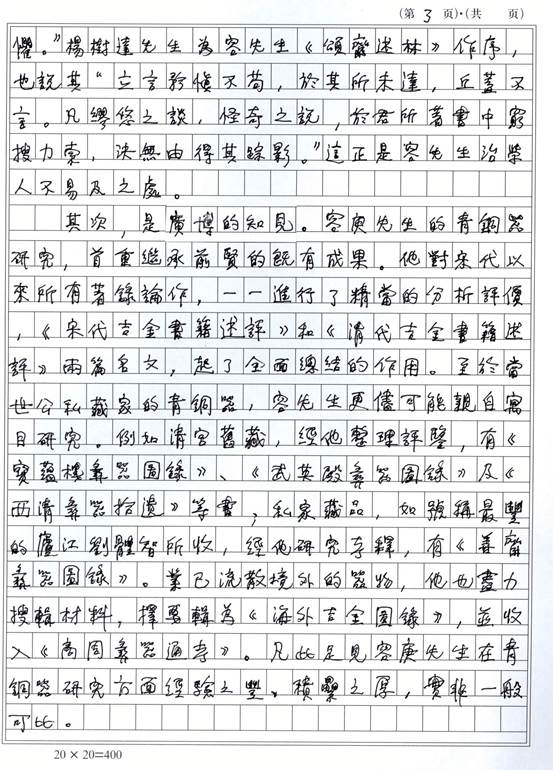 (第 3 頁)·(共 頁)
懼。”楊樹達先生為容先生《頌齋述林》作序，
也說其“立言矜慎不苟，於其所未達，丘蓋不
言。凡繆悠之談，怪奇之說，於君所著書中窮
搜力索，決無由得其踪影。”這正是容先生治學
人不易及之處。
其次，是廣博的知見。容庚先生的青銅器
研究，首重繼承前賢的既有成果。他對宋代以
來所有著錄論作，一一進行了精當的分析評價
，《宋代吉金書籍述評》和《清代吉金書籍述
評》兩篇名文，起了全面總結的作用。至於當
世公私藏家的青銅器，容先生更儘可能親自寓
目研究。例如清宮舊藏，經他整理評鑒，有《
寶蘊樓彝器圖錄》、《武英殿彝器圖錄》及《
西清彝器拾遺》等書；私家藏品，如號稱最豐
的廬江劉體智所收，經他研究考釋，有《善齋
彝器圖錄》。業已流散境外的器物，他也盡力
搜輯材料，擇要輯為《海外吉金圖錄》，並收
入《商周彝器通考》。凡此足見容庚先生在青
銅器研究方面經驗之豐、積累之厚，實非一般
可比。
20 × 20=400